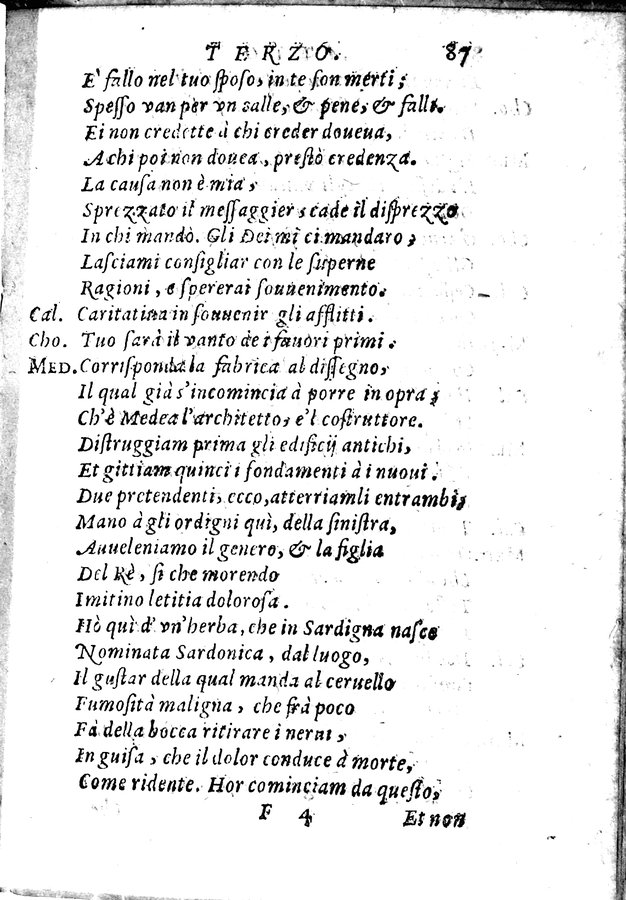 TERZO. 87
E' fallo nel tuo ſpoſo, in te ſon merti;
Speſſo van per vn valle, & pene, & falli.
Ei non credette à chi creder doueua,
A chi poi non douea, preſtò credenza.
La cauſa non è mia,
Sprezzato il meſſaggier, cade il diſprezzo
In chi mandò. Gli Dei mi ci mandaro,
Laſciami conſigliar con le ſuperne
Ragioni, e ſpererai ſouuenimento.
Cal. Caritatiua in ſouuenir gli afflitti.
Cho. Tuo ſarà il vanto de i fauori primi.
MED. Corriſponda la fabrica al diſſegno,
Il qual già s'incomincia à porre in opra;
Ch'è Medea l'architetto, e'l coſtruttore.
Diſtruggiam prima gli edificij antichi,
Et gittiam quinci i fondamenti à i nuoui.
Due pretendenti, ecco, atterriamli entrambi,
Mano à gli ordigni quì, della ſiniſtra,
Auueleniamo il genero, & la figlia
Del Rè, ſi che morendo
Imitino letitia doloroſa.
Hò quì d' vn'herba, che in Sardigna naſce
Nominata Sardonica, dal luogo,
Il guſtar della qual manda al ceruello
Fumoſità maligna, che frà poco
Fà della bocca ritirare i nerui,
In guiſa, che il dolor conduce à morte,
Come ridente. Hor cominciam da queſto,
F 4 Et non